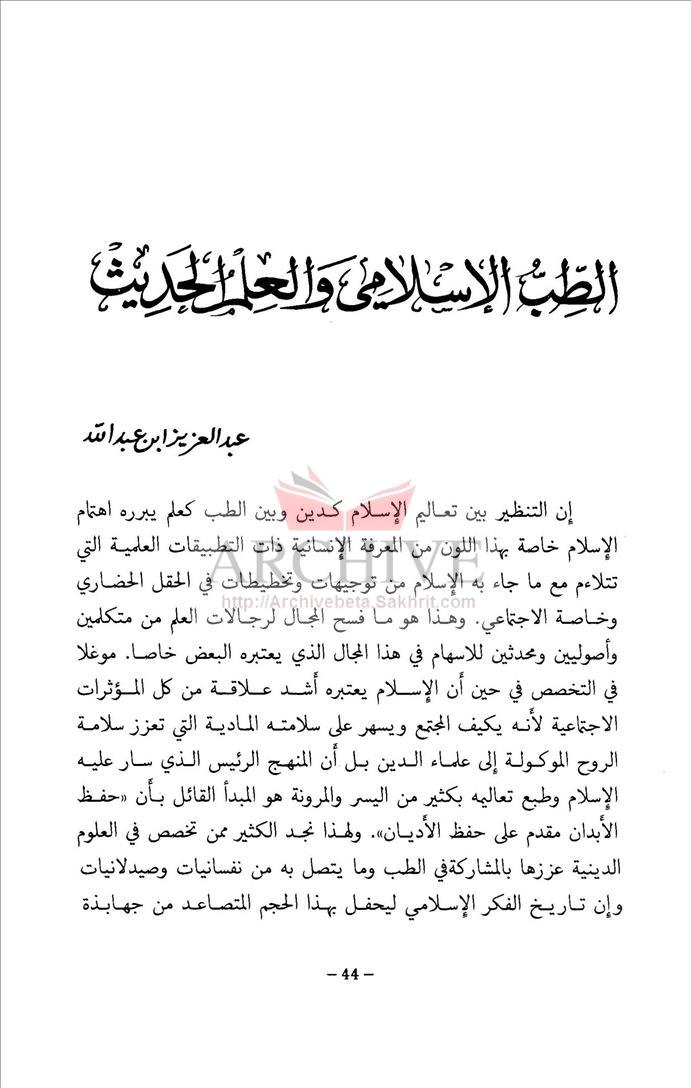 الطِّبُّ الإسْلَامِي وَالعِلمُ الحَدِيث
عبد العزيز ابن عبد الله
إن التنظير بين تعاليم الإسلام كدين وبين الطب كعلم يبرره اهتمام
الإسلام خاصة بهذا اللون من المعرفة الإنسانية ذات التطبيقات العلمية التي
ARCHIVE
تتلاءم مع ما جاء به الإسلام من توجيهات وتخطيطات في الحقل الحضاري
http://Archivebeta.Sakhrit.com
وخاصة الاجتماعي. وهذا هو ما فسح المجال لرجالات العلم من متكلمين
وأصوليين ومحدثين للاسهام في هذا المجال الذي يعتبره البعض خاصا. موغلا
في التخصص في حين أن الإسلام يعتبره أشد علاقة من كل المؤثرات
الاجتماعية لأنه يكيف المجتمع ويسهر على سلامته المادية التي تعزز سلامة
الروح الموكولة إلى علماء الدين بل أن المنهج الرئيس الذي سار عليه
الإسلام وطبع تعاليمه بكثير من اليسر والمرونة هو المبدأ القائل بأن «حفظ
الأبدان مقدم على حفظ الأديان». ولهذا نجد الكثير ممن تخصص في العلوم
الدينية عززها بالمشاركة في الطب وما يتصل به من نفسانيات وصيدلانيات
وإن تاريخ الفكر الإسلامي ليحفل بهذا الحجم المتصاعد من جهابذة
– 44 –